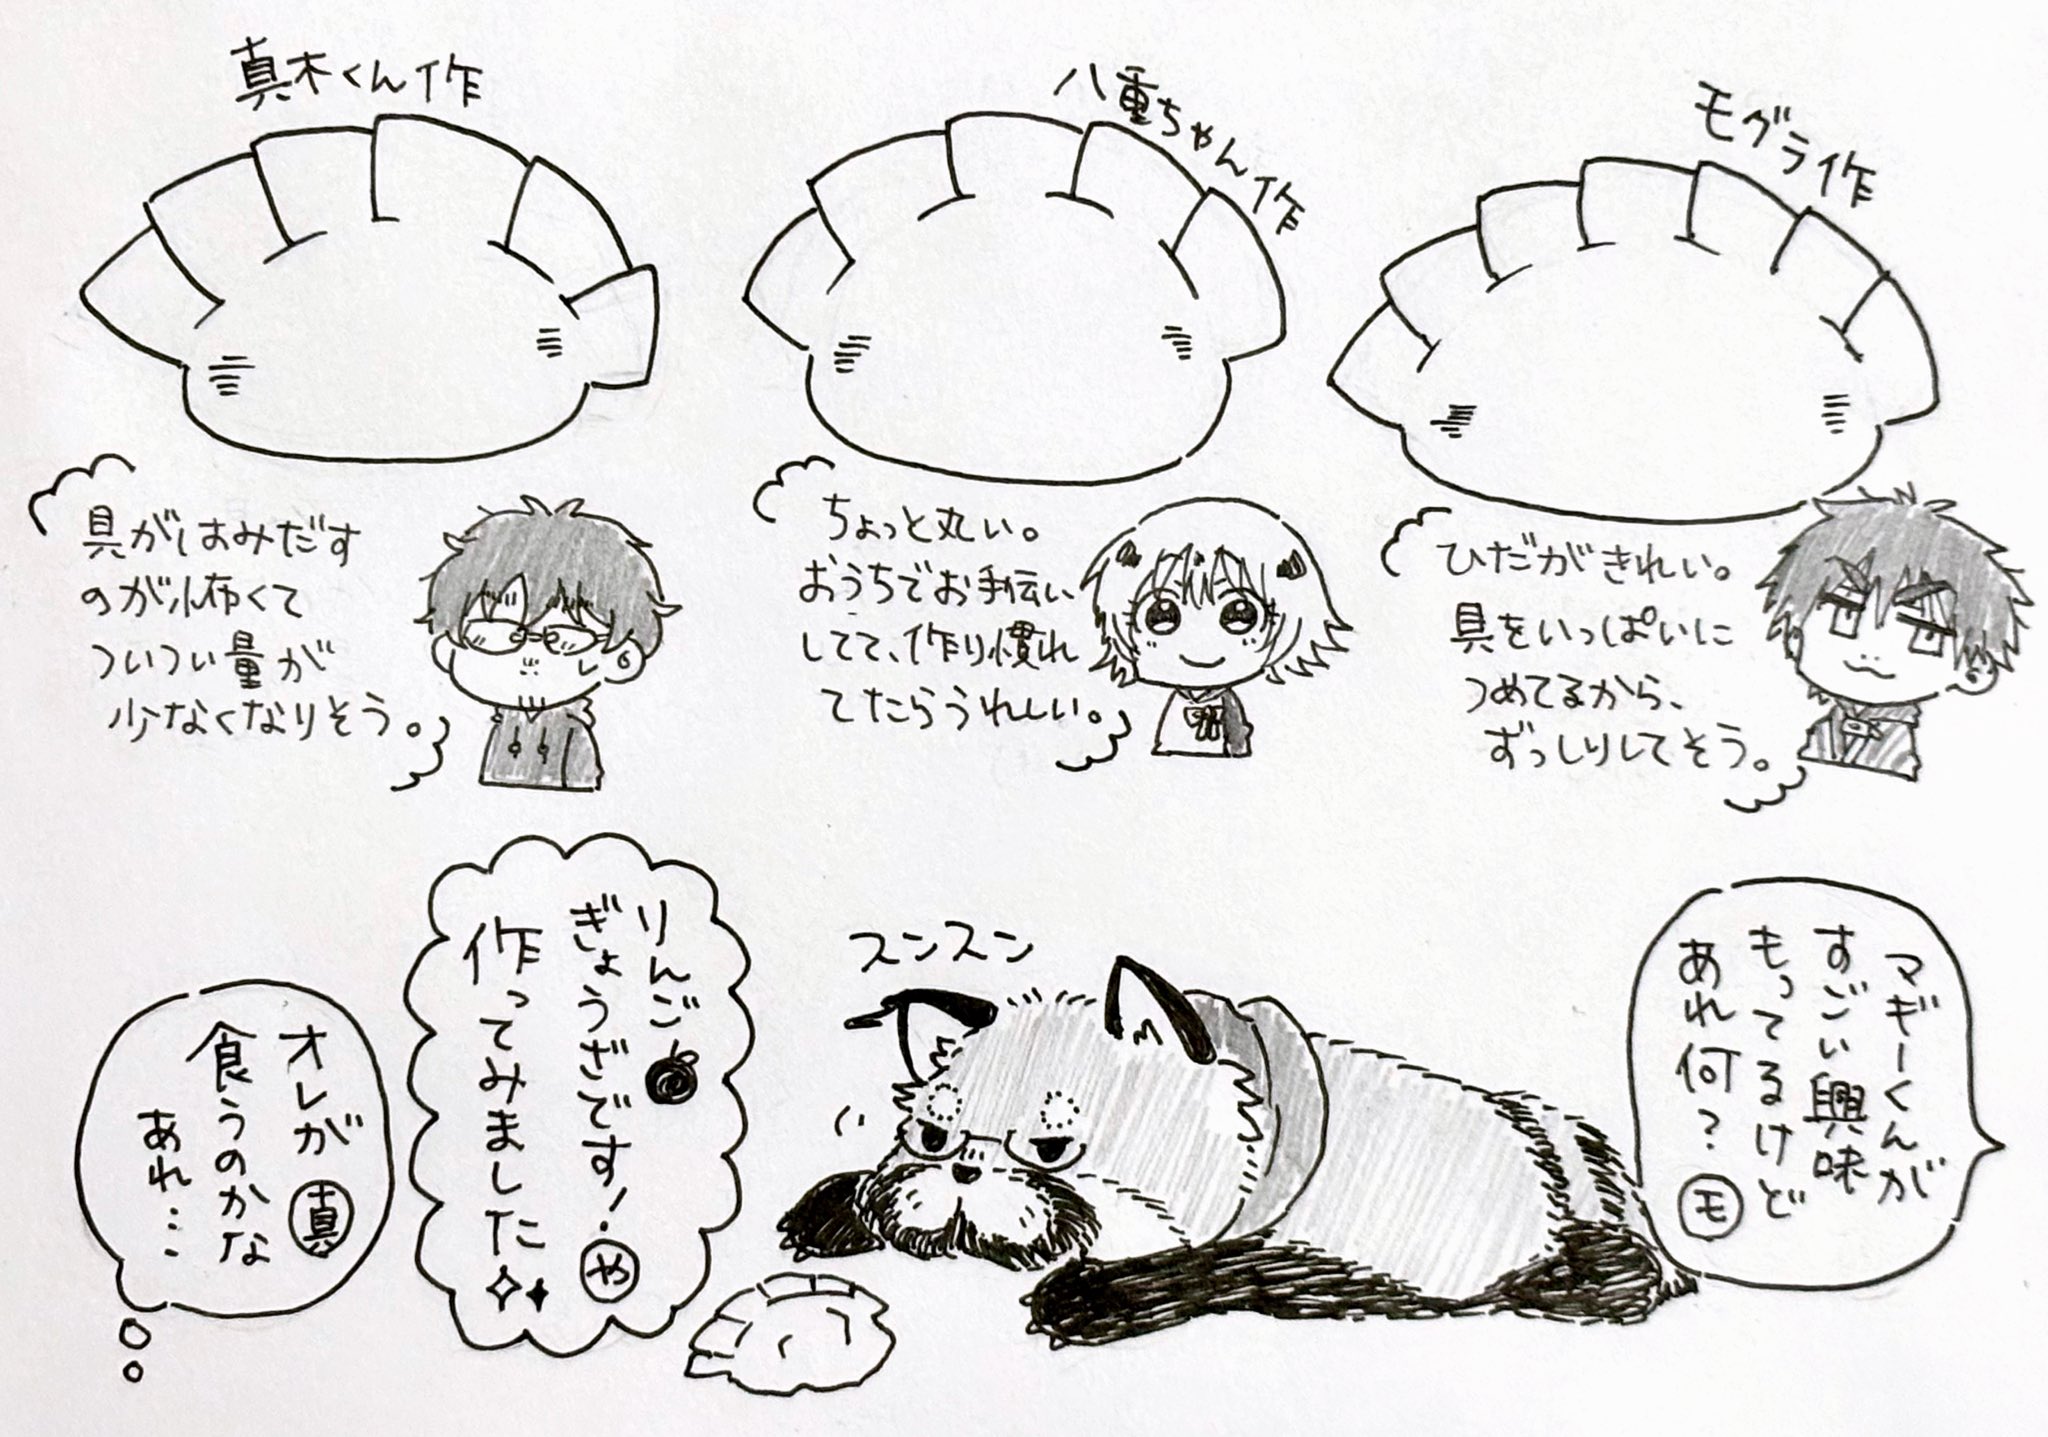 真木くん作
具がはみだす
のが怖くて
ついつい量が
少なくなりそう。
八重ちゃん作
ちょっと丸い。
おうちでお手伝い
してて、作り慣れ
てたらうれしい。
モグラ作
ひだがきれい。
具をいっぱいに
つめてるから、
ずっしりしてそう。
マギーくんが
すごい興味
もってるけど
あれ何？
モ
スンスン
りんご
ぎょうざです！
や
作ってみました
オレが
真
食うのかな
あれ…